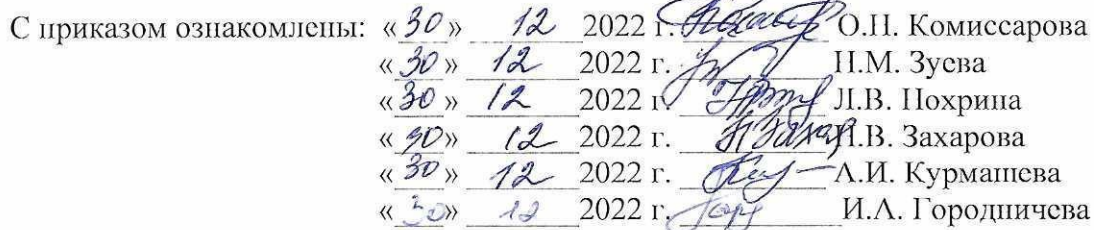 С приказом ознакомлены: «30» 12 2022 г. О.П. Комиссарова
«30» 12 2022 г. Н.М. Зуева
«30» 12 2022 г. Л.В. Похрина
«30» 12 2022 г. Н.В. Захарова
«30» 12 2022 г. А.И. Курмашева
«30» 12 2022 г. И.А. Городничева